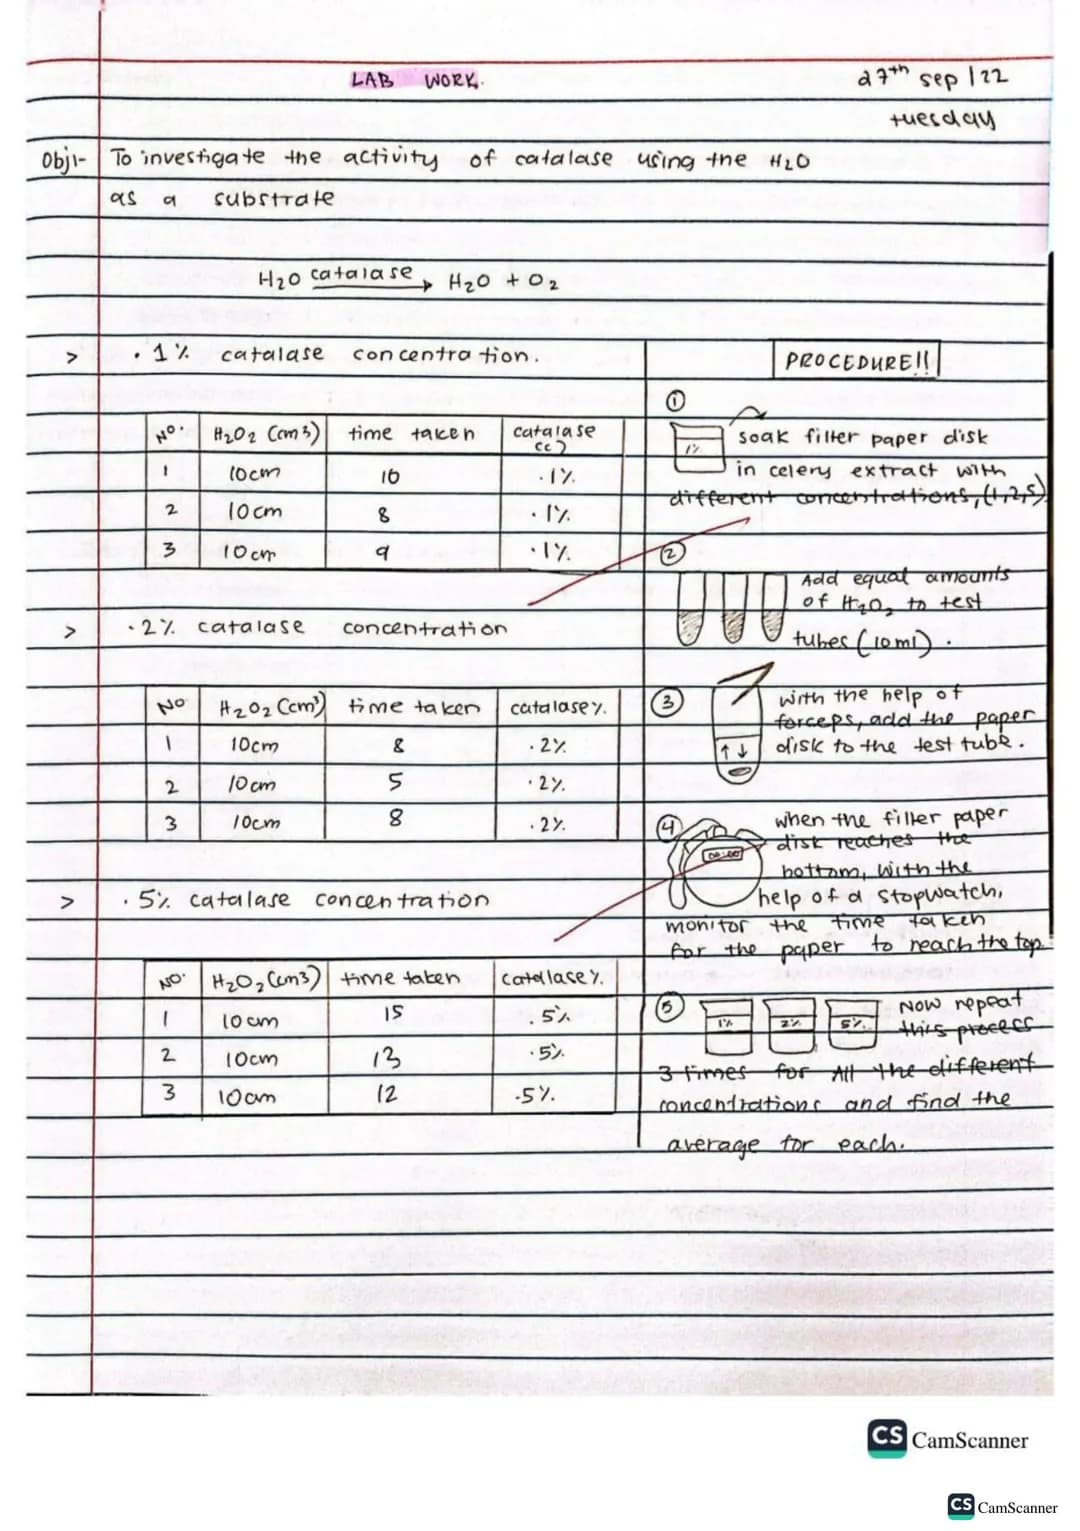 LAB WORK.
27th sep 122
tuesday
Obj1- To investigate the activity of catalase using the H2O
as a substrate
H2O catalase → H2O + O2
> · 1% catalase concentration.
No: H2O2 (cm3) time taken catalase
1 10cm 10 · 1%
2 10cm 8 · 1%
3 10cm 9 · 1%
> · 2% catalase concentration
No H2O2 (cm3) time taken catalase%.
1 10cm 8 · 2%
2 10cm 5 · 2%
3 10cm 8 · 2%
> · 5% catalase concentration
NO. H2O2 (cm3) time taken catallace%.
1 10cm 15 . 5%
2 10cm 13 · 5%
3 10cm 12 .5%
PROCEDURE!!
①
1% soak filter paper disk
in celery extract with
different concentrations, (1,2,5)
②
Add equal amounts
of H2O2 to test
tubes (10ml).
③ with the help of
forceps, add the paper
disk to the test tube.
④ when the filter paper
disk reaches the
00:00 bottom, with the
help of a stopwatch,
monitor the time taken
for the paper to reach the top.
⑤ 1% 2% 5% Now repeat
this process
3 times for All the different
concentrations and find the
average for each.
CS CamScanner
CS CamScanner